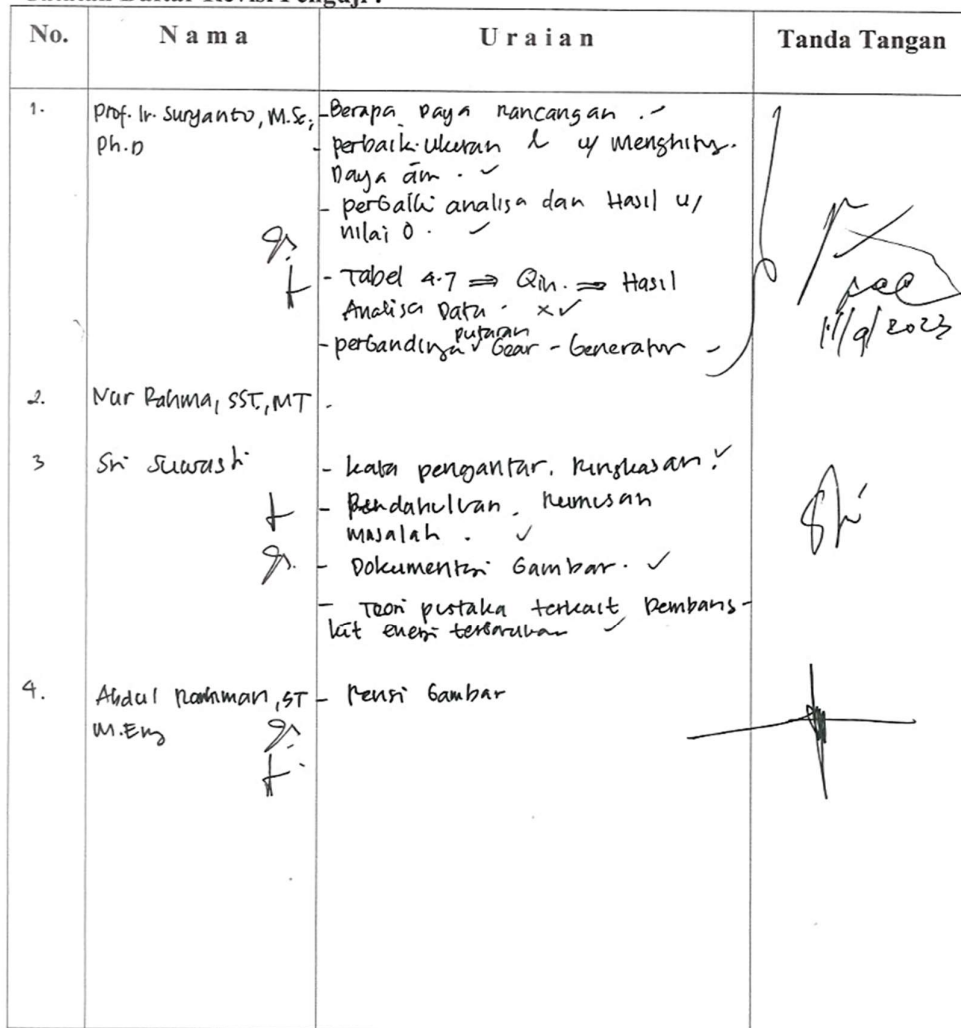 Catatan Daftar Revisi Penguji :
No. Nama Uraian Tanda Tangan
1. Prof. Ir. Suryanto, M.Sc, - Berapa Daya Rancangan. ✓
Ph.D - perbaiki ukuran u/ menghitng.
Daya air. ✓
- perbaiki analisa dan Hasil u/
nilai 0. ✓
- Tabel 4.7 ⇒ Qin. ⇒ Hasil
Analisa Data. x✓
- perbandingan putaran Gear - Generator -
acc
11/9/2023
2. Nur Rahma, SST., MT -
3 Sri Suwasti - kata pengantar, Ringkasan. ✓
- Pendahuluan, Rumusan
masalah. ✓
- Dokumentasi Gambar. ✓
- Teori pustaka terkait Pembang-
kit energi terbarukan ✓
4. Abdul Rahman, ST - Revisi Gambar
M.Eng